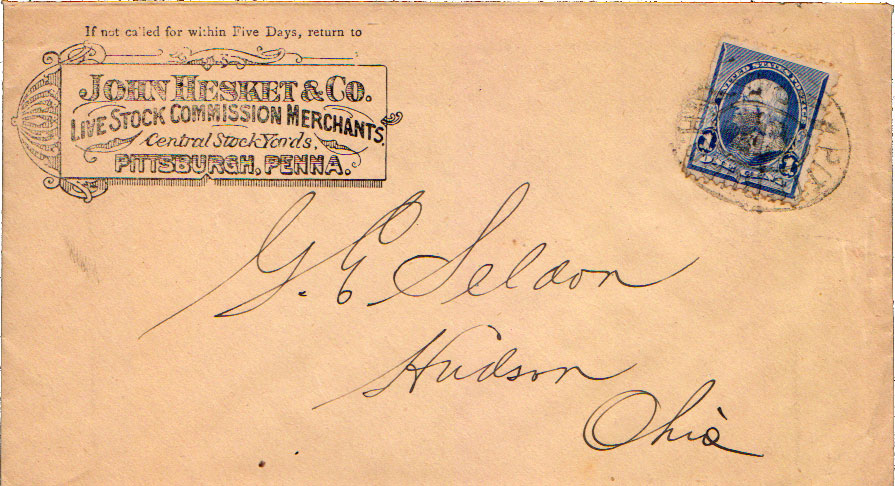 If not called for within Five Days, return to
JOHN HESKET & CO.
LIVE STOCK COMMISSION MERCHANTS,
Central Stock Yards,
PITTSBURGH, PENNA.
UNITED STATES POSTAGE
1 1
ONE CENT
G. E Seldon
Hudson
Ohio